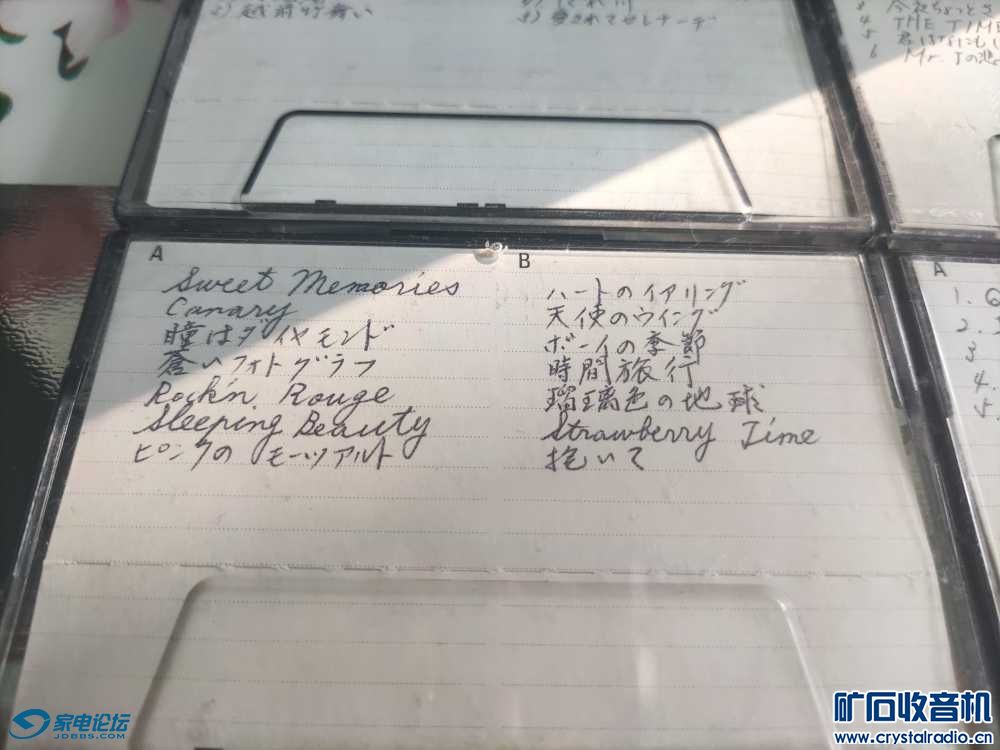 2) 越前竹舞い
TIME
Mr. Jの悲
A
Sweet Memories
Canary
瞳はダイヤモンド
蒼いフォトグラフ
Rock'n Rouge
Sleeping Beauty
ピンクの モーツアルト
B
ハートのイアリング
天使のウイング
ボーイの季節
時間旅行
瑠璃色の地球
Strawberry Time
抱いて
A
1.
2.
3
4.
5
家电论坛
JDBBS.COM
矿石收音机
www.crystalradio.cn